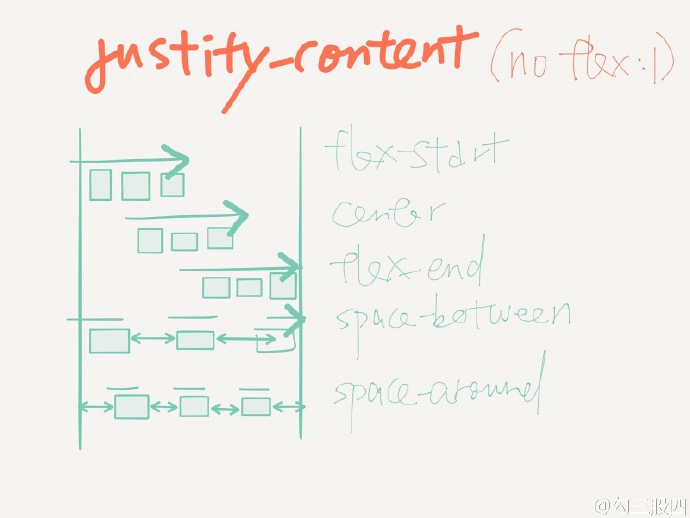 justify-content (no flex:1)
flex-start
center
flex-end
space-between
space-around
@勾三股四